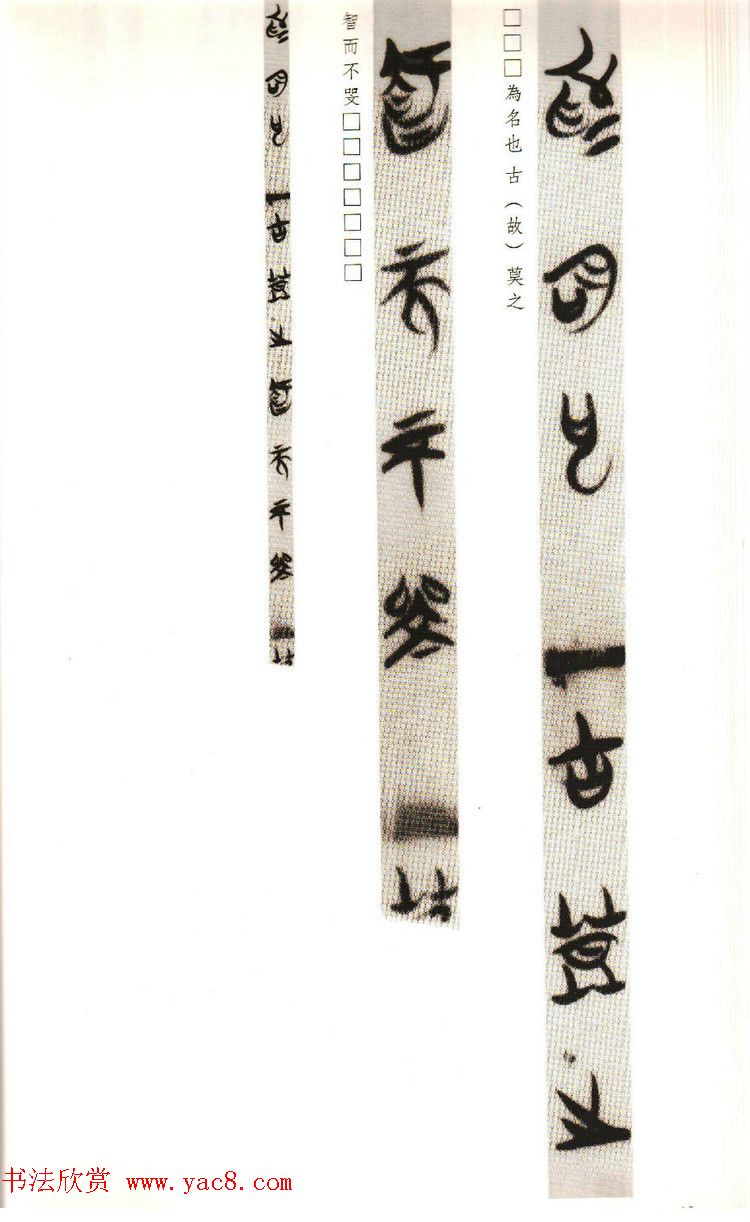 □□□為名也古（故）莫之
智而不㗊□□□□□□□
书法欣赏 www.yac8.com